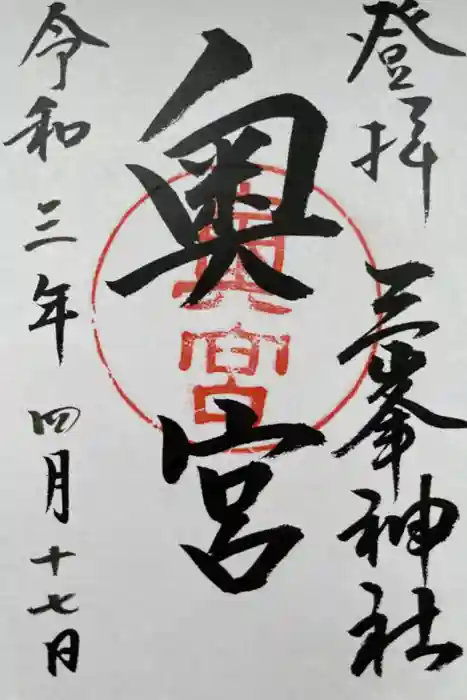 登拝 三峯神社
奥宮
奥宮
令和三年四月十七日